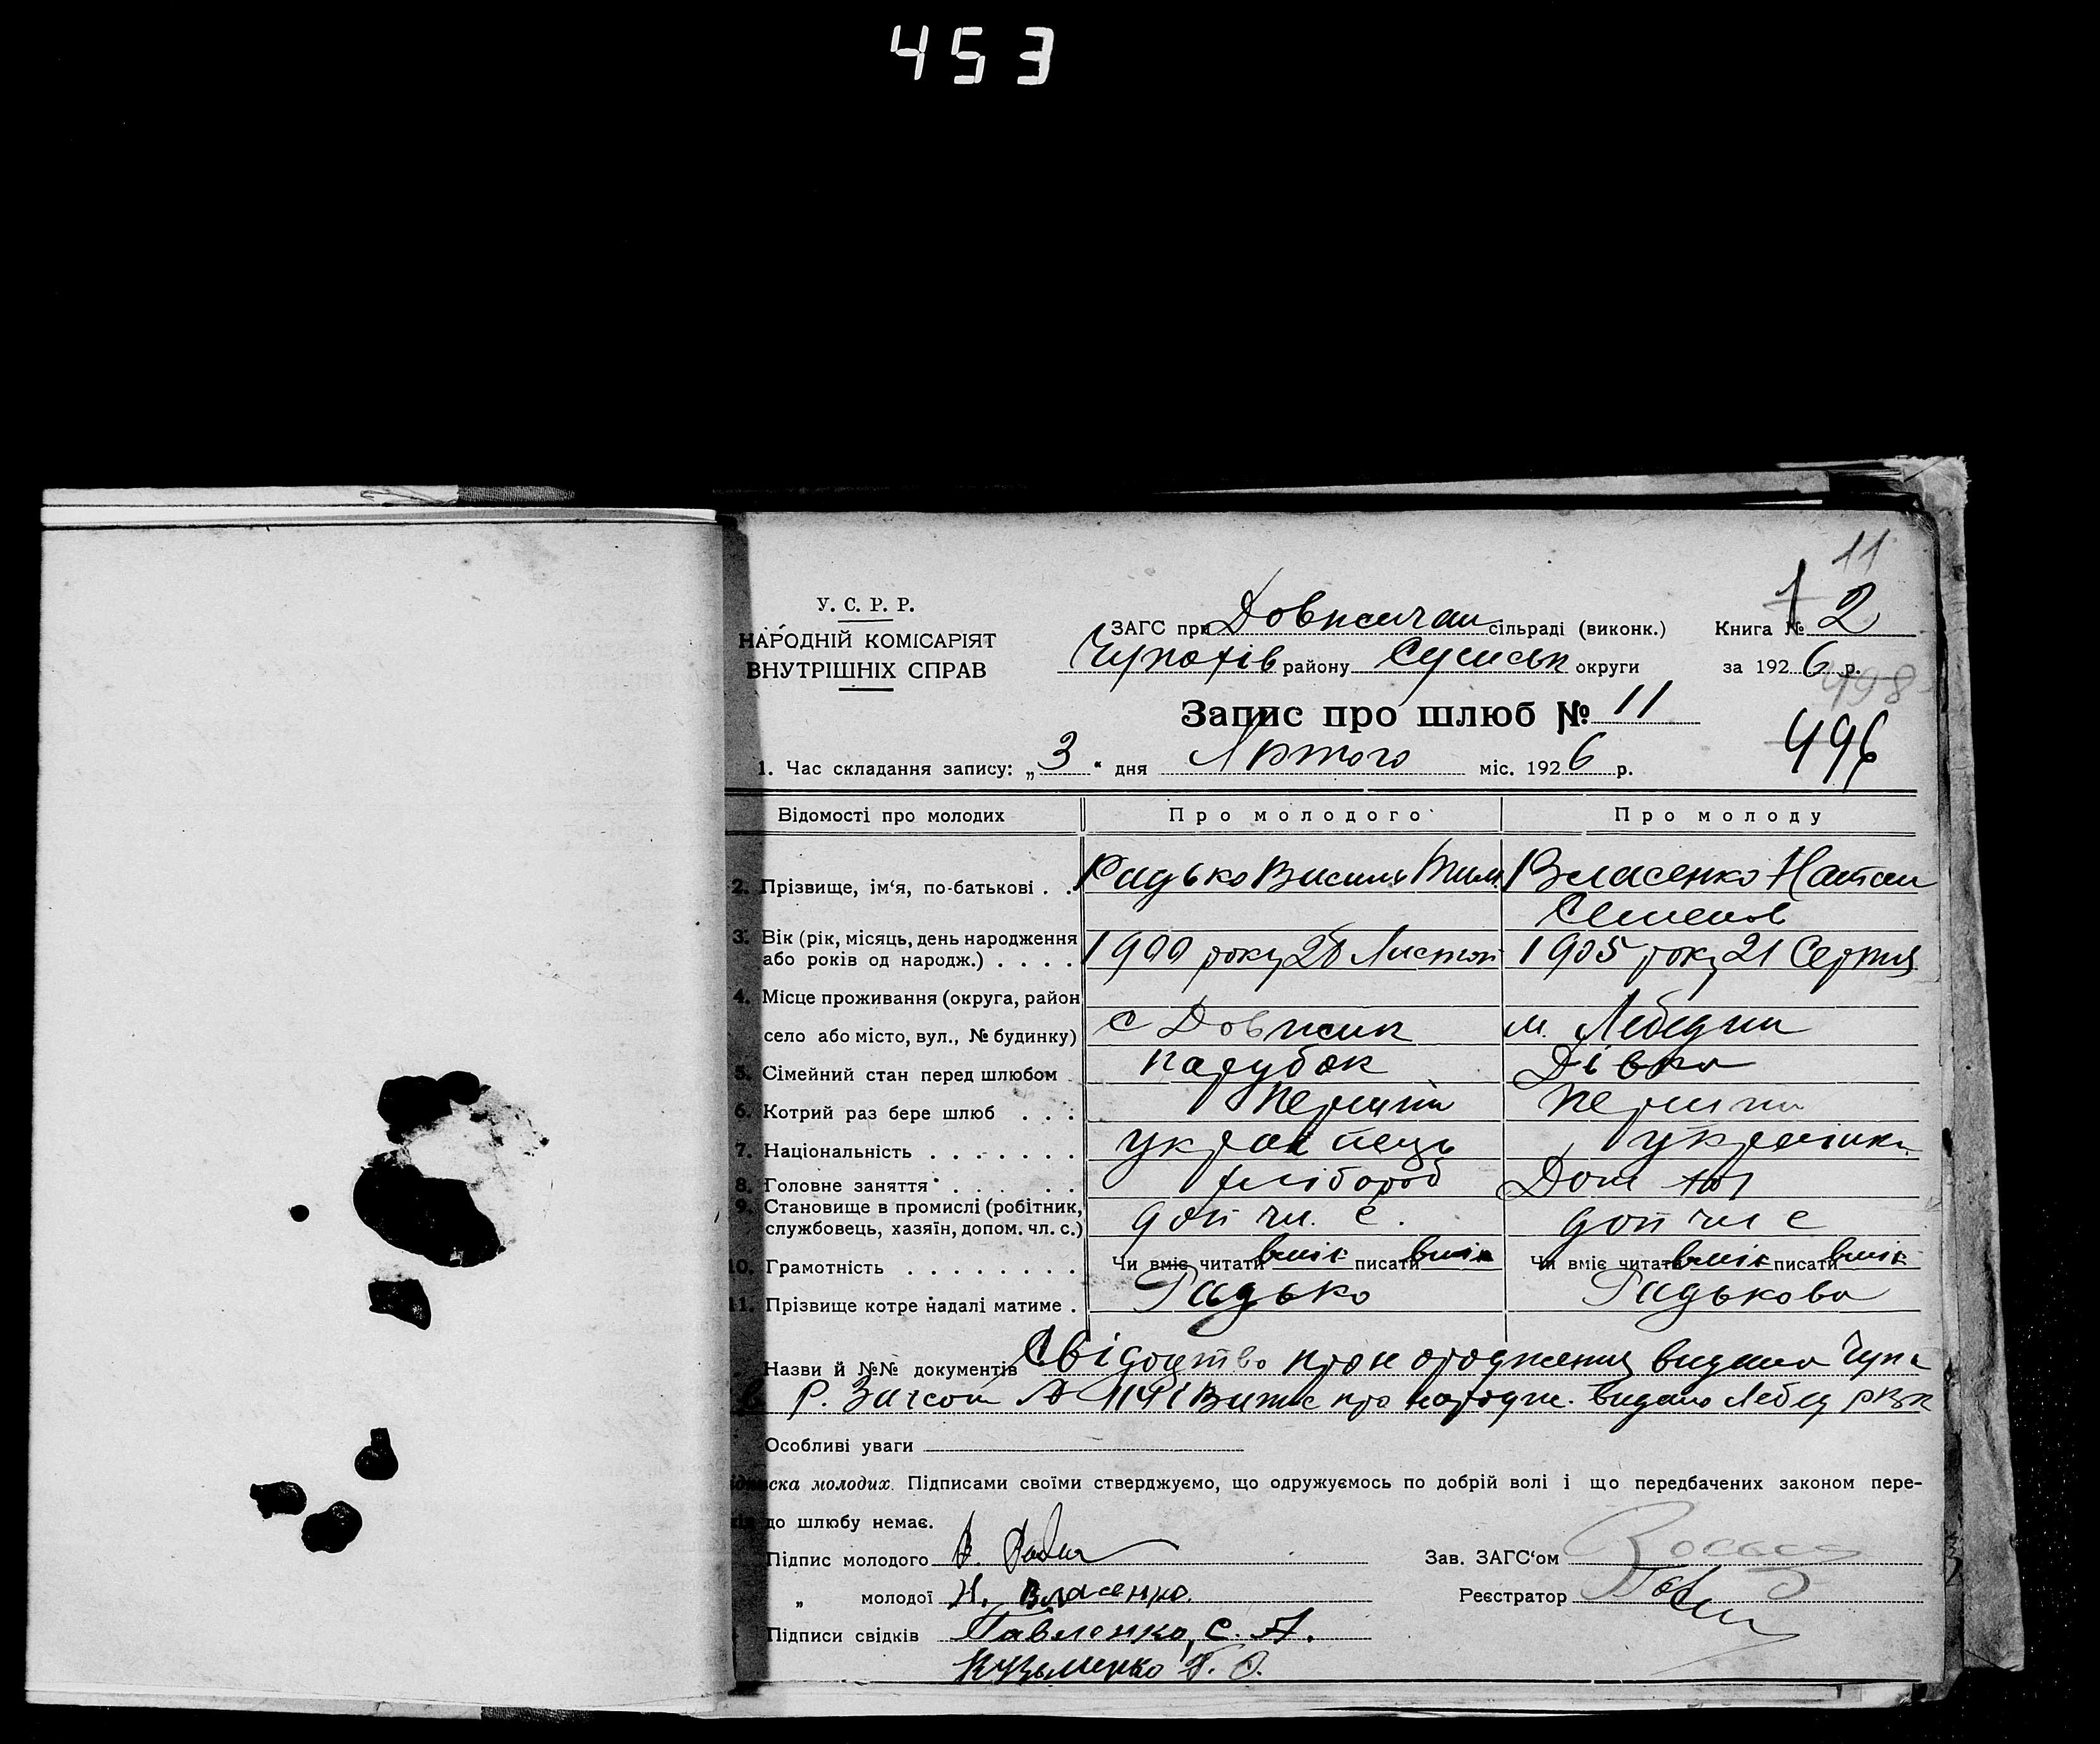 453
11
У. С. Р. Р.
НАРОДНІЙ КОМІСАРІЯТ
ВНУТРІШНІХ СПРАВ
ЗАГС при Довжичан сільраді (виконк.)
Книга № 2
Чупахів району Сумськ округи
за 1926 р.
498
Запис про шлюб № 11
496
1. Час складання запису: „3" дня Лютого міс. 1926 р.
Відомості про молодих Про молодого Про молоду
2. Прізвище, ім'я, по-батькові . . Радько Василь Тим Власенко Натал
Семенов
3. Вік (рік, місяць, день народження
або років од народж.) . . . . 1900 року Листоп 1905 року 21 Серпня
4. Місце проживання (округа, район
село або місто, вул., № будинку) с Довжик м. Лебедин
5. Сімейний стан перед шлюбом парубок Дівка
6. Котрий раз бере шлюб . . . Перший перший
7. Національність . . . . . . . українець українка
8. Головне заняття . . . . . . хлібороб Дом
9. Становище в промислі (робітник,
службовець, хазяїн, допом. чл. с.) доп чл. с. доп чл с
10. Грамотність . . . . . . . . Чи вміє читати вміє писати вміє Чи вміє читати вміє писати вміє
11. Прізвище котре надалі матиме . Радько Радькова
Назви й №№ документів Свідоцтво про народження видано Чупа
Р. Загсом Витяг про народж. видано Лебед РВК
Особливі уваги
підписка молодих. Підписами своїми стверджуємо, що одружуємось по добрій волі і що передбачених законом пере-
до шлюбу немає.
Підпис молодого В.
Зав. ЗАГС'ом
„ молодої Н. Власенко.
Реєстратор
Підписи свідків Павленко, С. А.
Кузьменко Г. О.